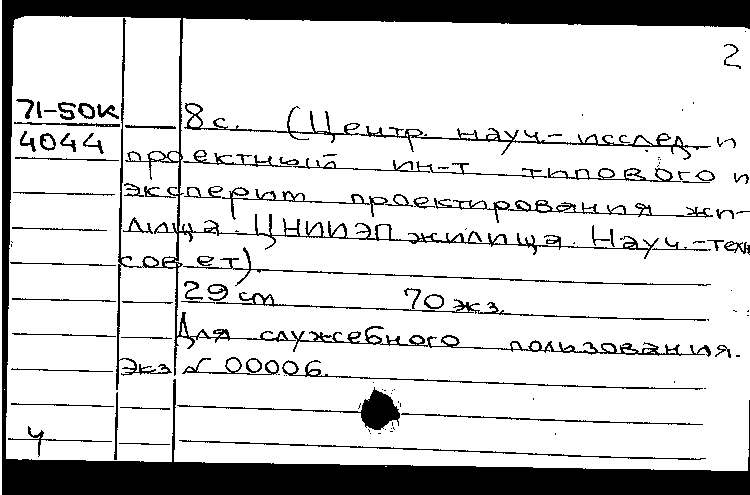 2
71-50к
4044
8 с. (Центр. науч.-исслед. и
проектный ин-т типового и
эксперим. проектирования жи-
лища. ЦНИИЭП жилища. Науч.-техн.
совет).
29 см 70 экз.
Для служебного пользования.
Экз № 00006.
Ч